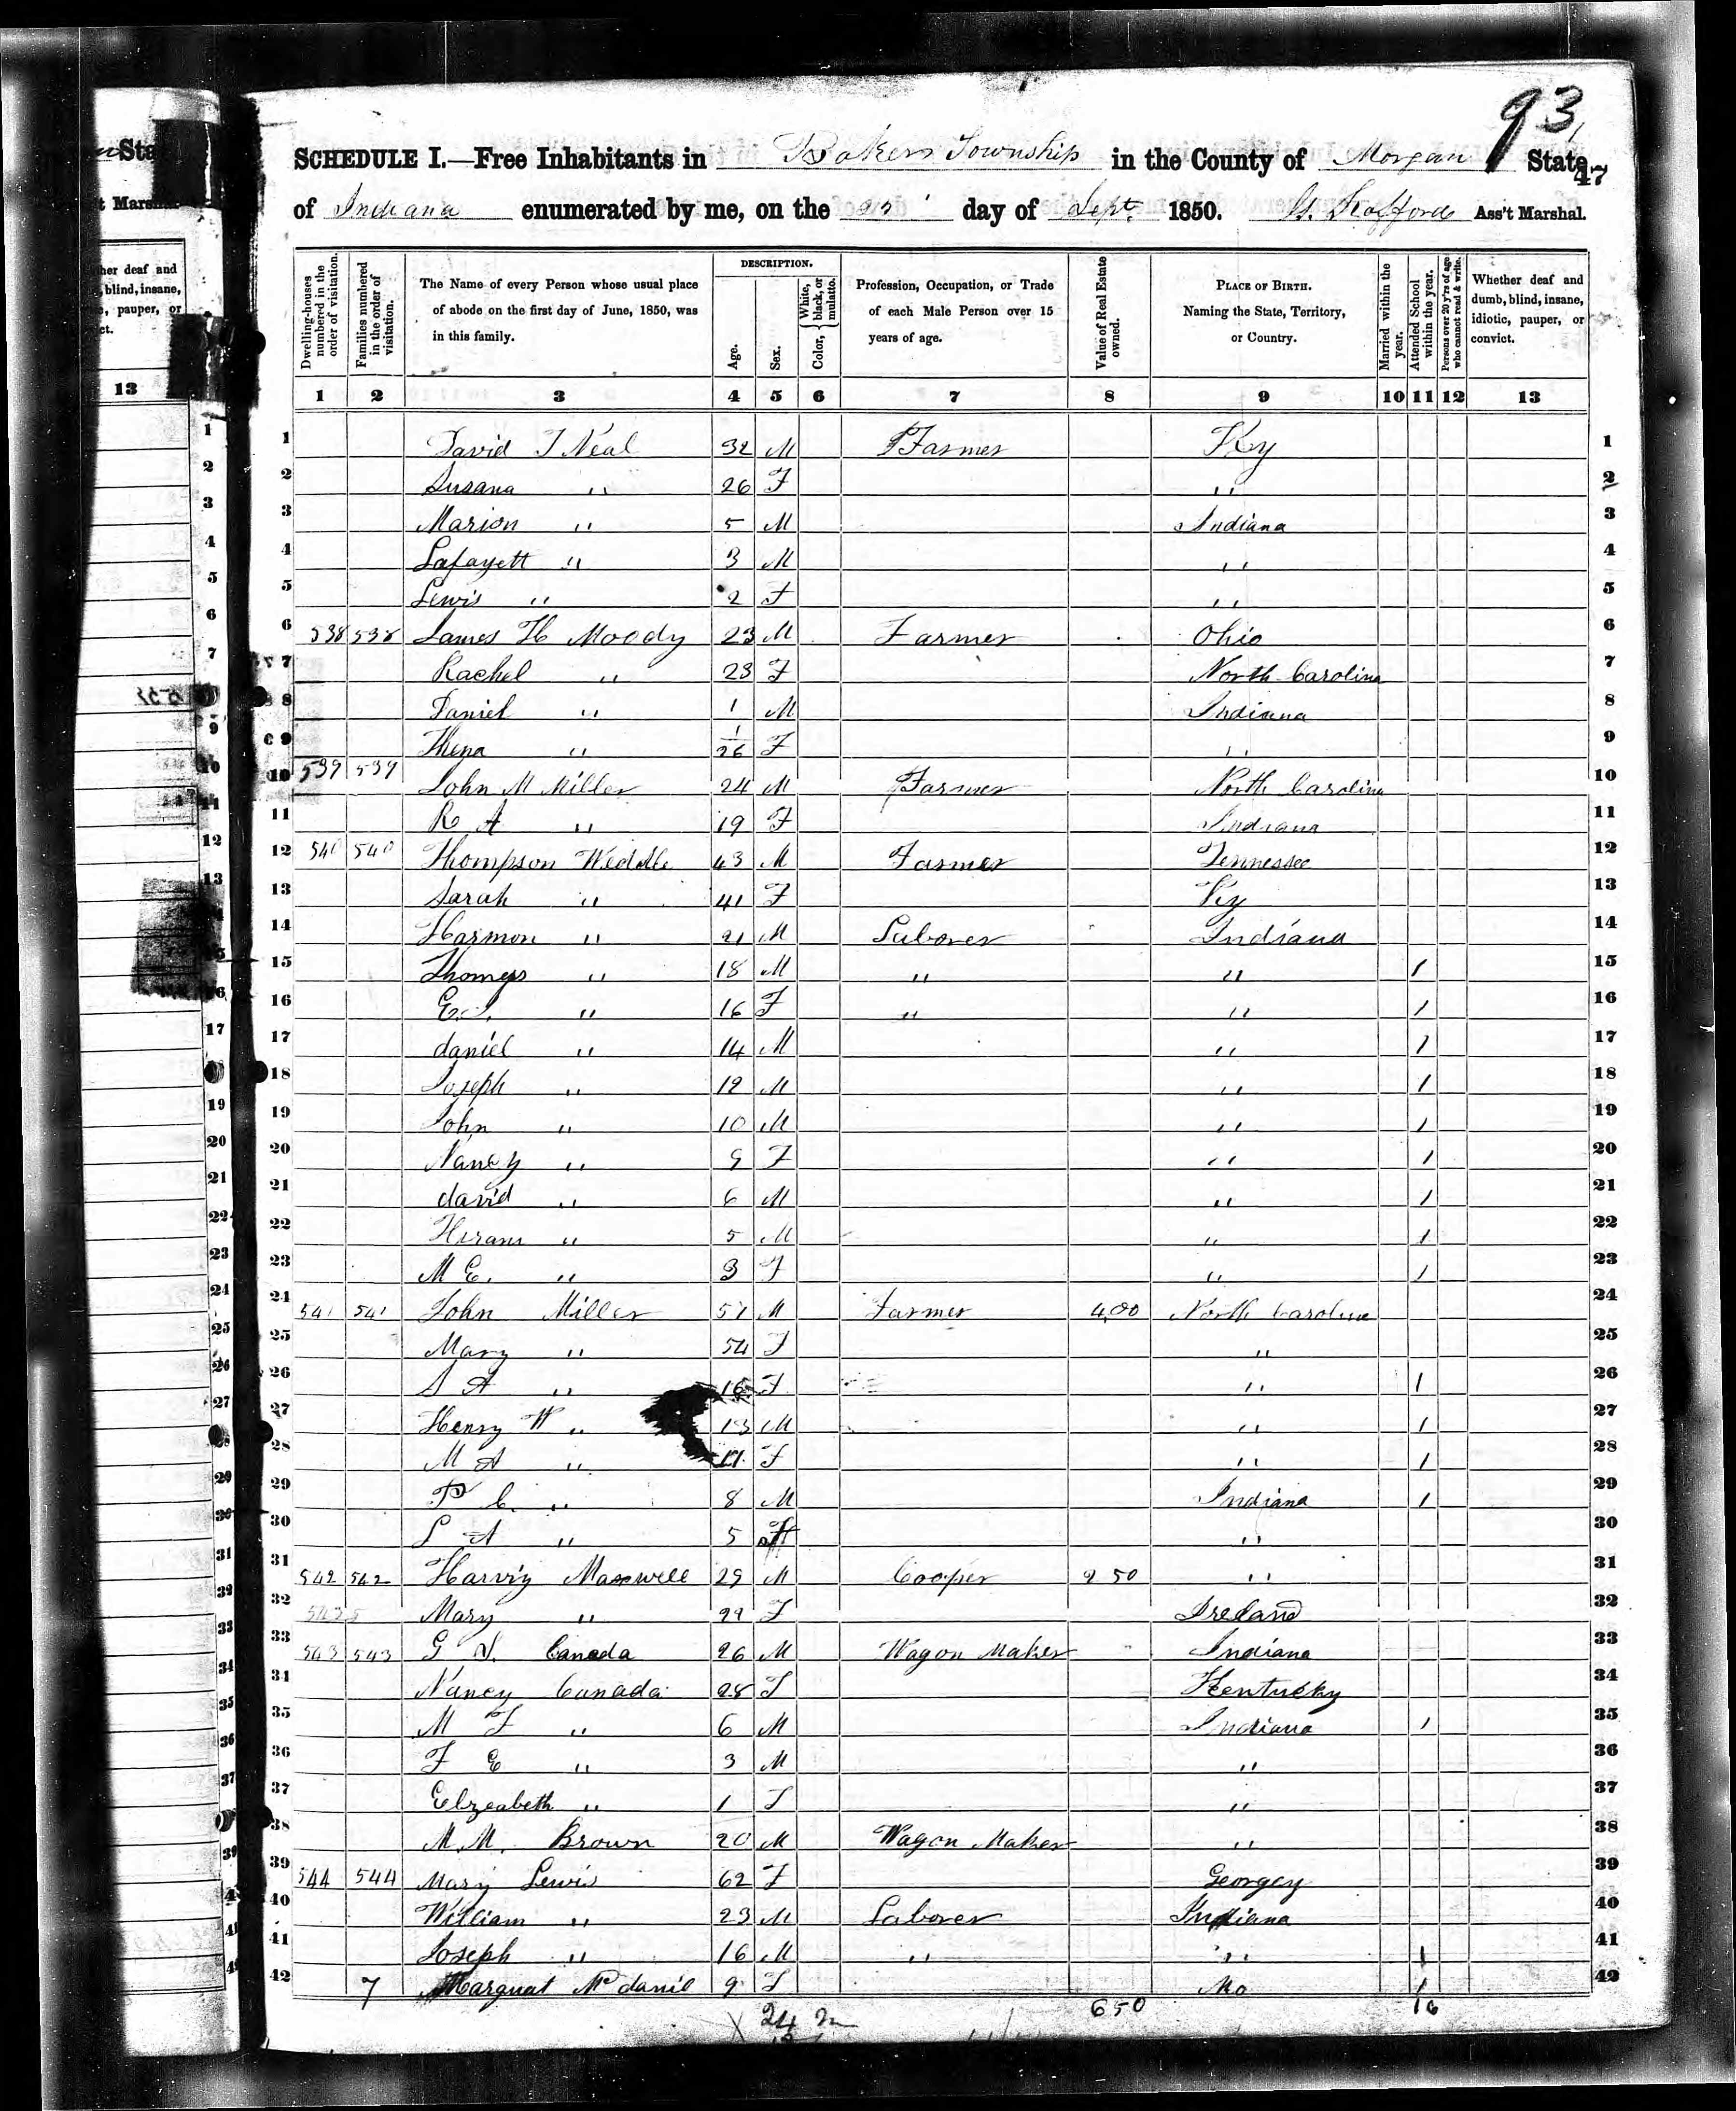 93
SCHEDULE I.—Free Inhabitants in Bakers Township in the County of Morgan State
47
of Indiana enumerated by me, on the day of Sept. 1850. Ass't Marshal.
Dwelling-houses numbered in the order of visitation.
Families numbered in the order of visitation.
The Name of every Person whose usual place of abode on the first day of June, 1850, was in this family.
DESCRIPTION.
Age.
Sex.
Color, { White, black, or mulatto.
Profession, Occupation, or Trade of each Male Person over 15 years of age.
Value of Real Estate owned.
PLACE OF BIRTH. Naming the State, Territory, or Country.
Married within the year.
Attended School within the year.
Persons over 20 y'rs of age who cannot read & write.
Whether deaf and dumb, blind, insane, idiotic, pauper, or convict.
1 2 3 4 5 6 7 8 9 10 11 12 13
1 David T Neal 32 M Farmer Ky 1
2 Susana " 26 F " 2
3 Marion " 5 M Indiana 3
4 Lafayett " 3 M " 4
5 Lewis " 2 F " 5
6 538 538 James H Moody 23 M Farmer Ohio 6
7 Rachel " 23 F North Carolina 7
8 Daniel " 1 M Indiana 8
9 " 1/26 F " 9
10 539 539 John M Miller 24 M Farmer North Carolina 10
11 R A " 19 F Indiana 11
12 540 540 Thompson Weddle 43 M Farmer Tennessee 12
13 Sarah " 41 F Ky 13
14 Harmon " 21 M Laborer Indiana 14
15 Thomas " 18 M " " 1 15
16 E. " 16 F " " 1 16
17 daniel " 14 M " 1 17
18 Joseph " 12 M " 1 18
19 John " 10 M " 1 19
20 Nancy " 9 F " 1 20
21 david " 6 M " 1 21
22 Hiram " 5 M " 1 22
23 M E. " 3 F " 1 23
24 541 541 John Miller 51 M Farmer 400 North Caroline 24
25 Mary " 54 F " 25
26 S A " 16 F " 1 26
27 Henry W " 13 M " 1 27
28 M A " 11 F " 1 28
29 P C. " 8 M Indiana 1 29
30 S A " 5 F " 30
31 542 542 Harviy Maxwell 29 M Cooper 250 " 31
32 Mary " 29 F Ireland 32
33 543 543 G S. Canada 26 M Wagon Maker Indiana 33
34 Nancy Canada 28 F Kentucky 34
35 M F " 6 M Indiana 1 35
36 F E " 3 M " 36
37 Elzeabeth " 1 F " 37
38 M. M. Brown 20 M Wagon Maker " 38
39 544 544 Mary Lewis 62 F Georgey 39
40 William " 23 M Laborer Indiana 40
41 Joseph " 16 M " " 1 41
42 7 Marguat McDanil 9 F Mo 1 42
24 m 650 16